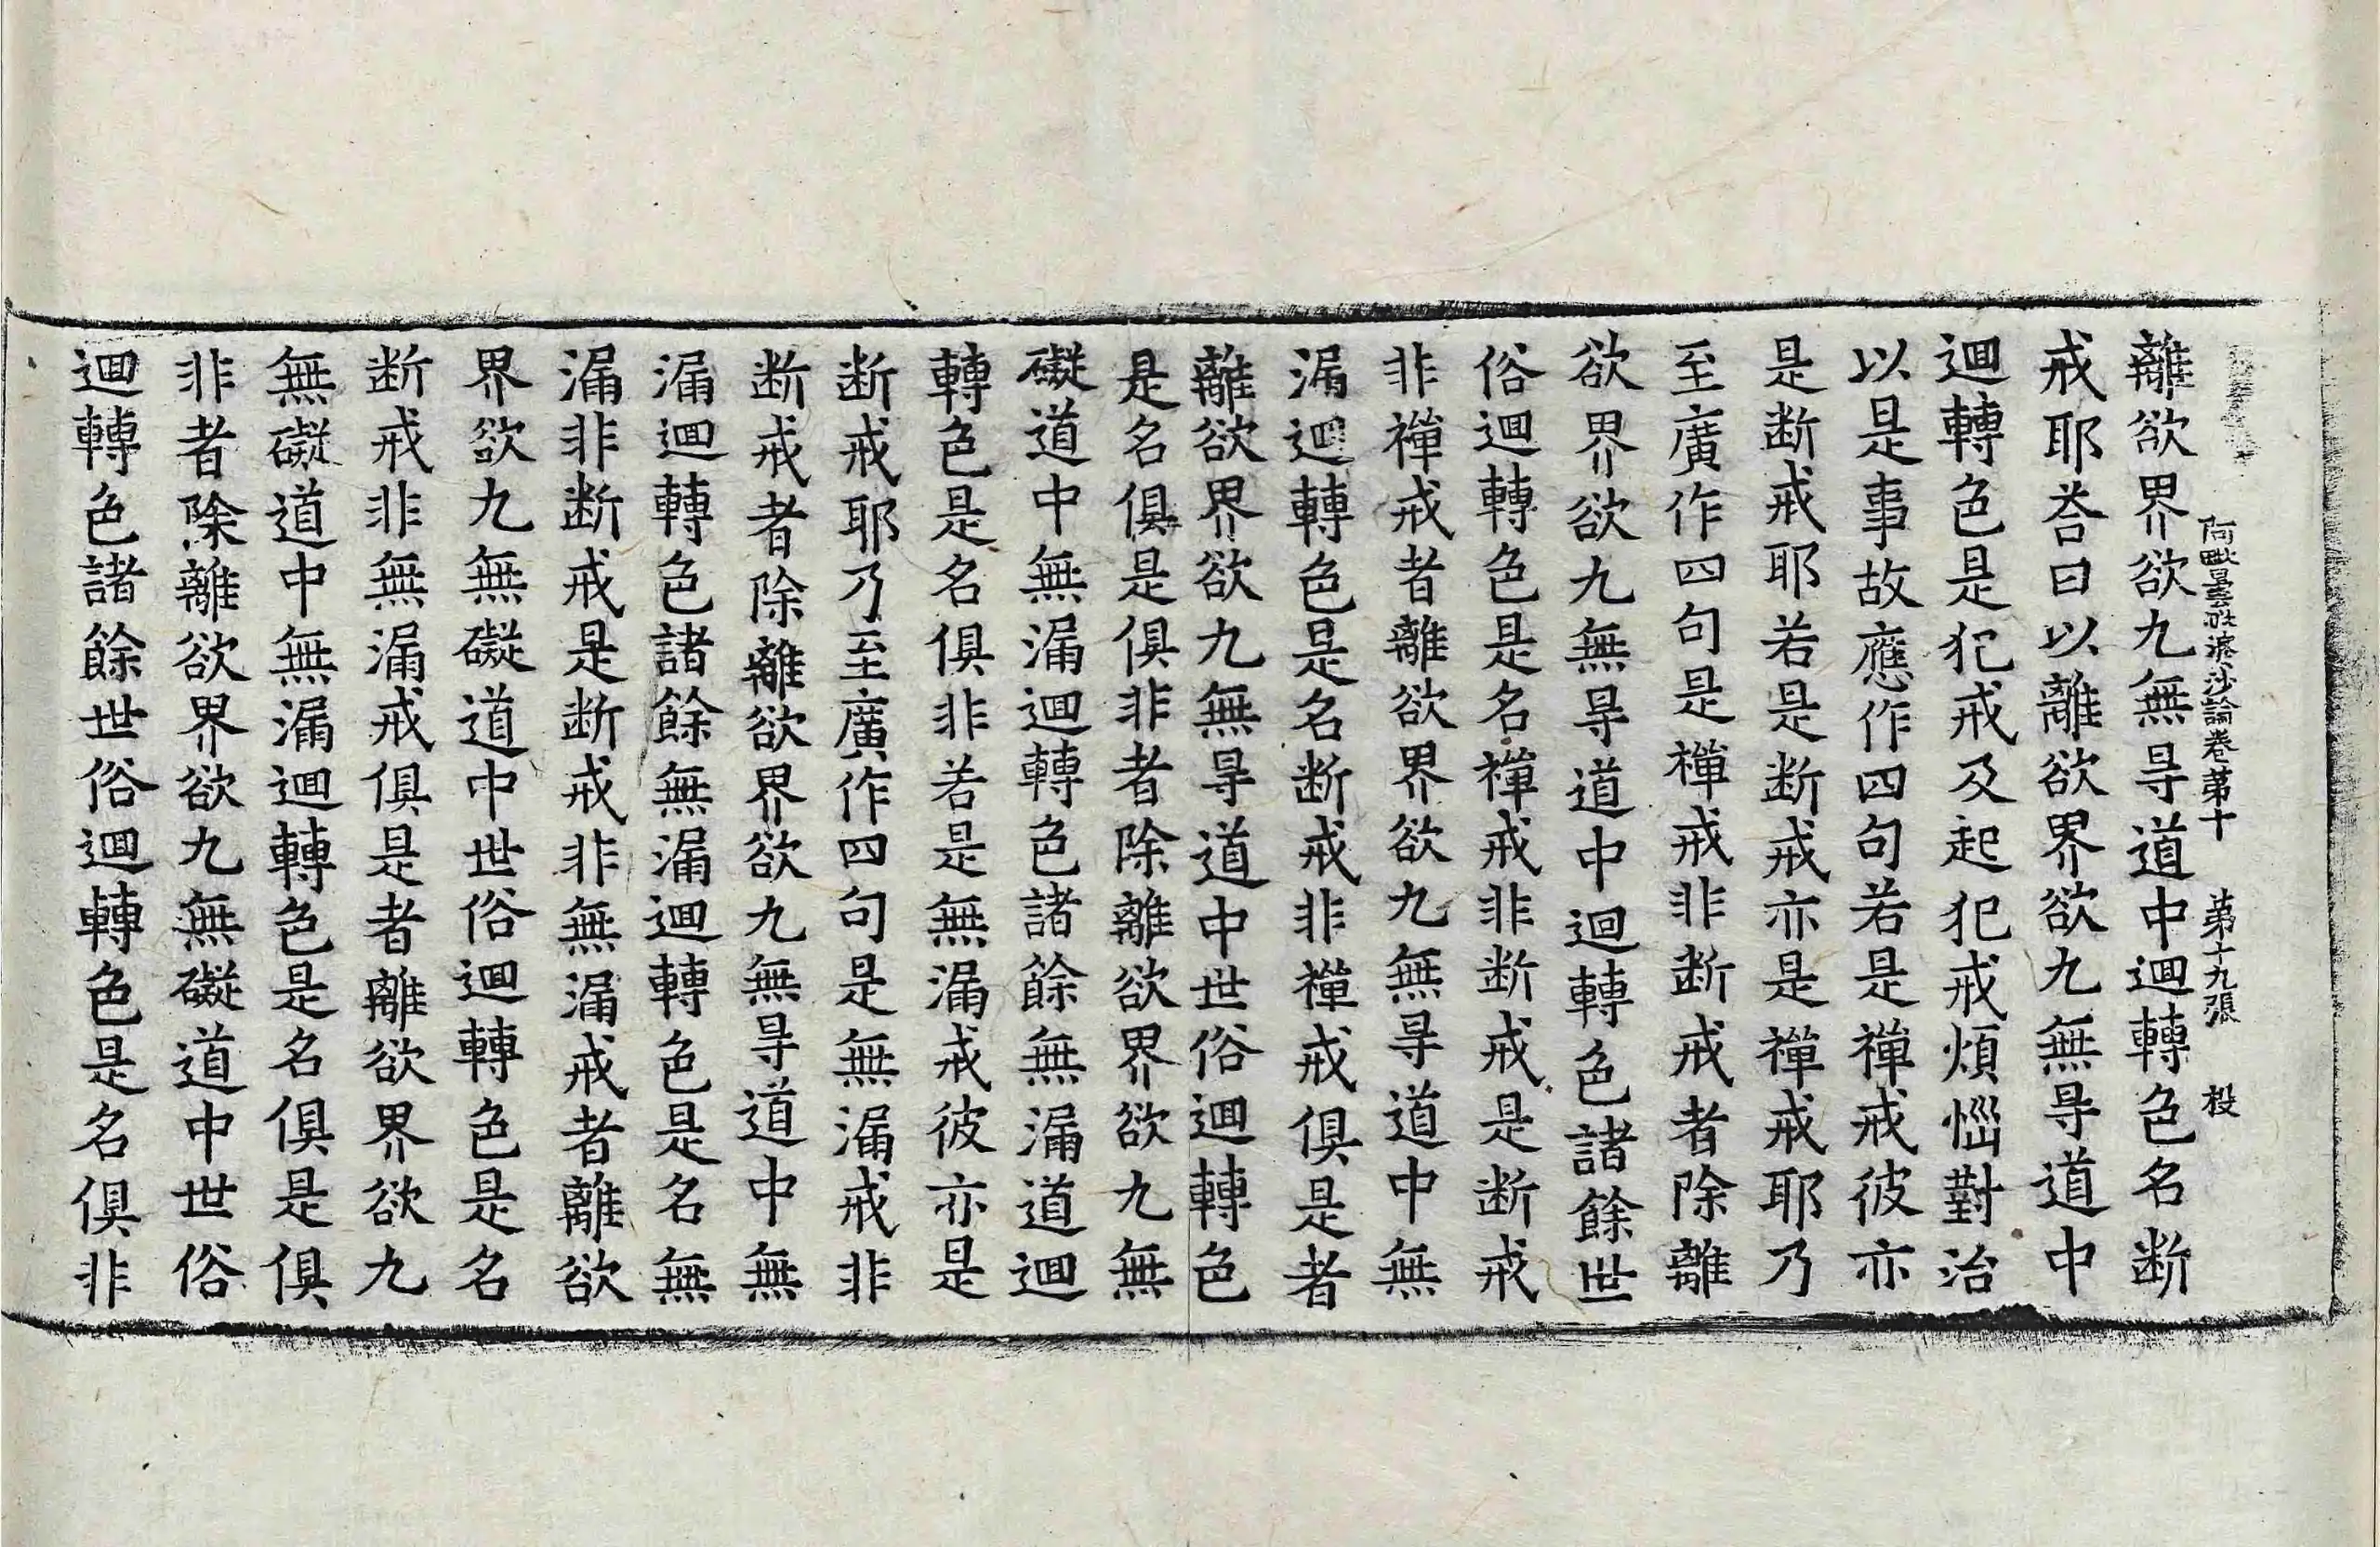 阿毗曇毗婆沙論卷第十　第十九張　投
離欲界欲九無㝵道中迴轉色名断
戒耶荅曰以離欲界欲九無㝵道中
迴轉色是犯戒及起犯戒煩惱對治
以是事故應作四句若是禪戒彼亦
是断戒耶若是断戒亦是禪戒耶乃
至廣作四句是禪戒非断戒者除離
欲界欲九無㝵道中迴轉色諸餘世
俗迴轉色是名禪戒非断戒是断戒
非禪戒者離欲界欲九無㝵道中無
漏迴轉色是名断戒非禪戒俱是者
離欲界欲九無㝵道中世俗迴轉色
是名俱是俱非者除離欲界欲九無
礙道中無漏迴轉色諸餘無漏道迴
轉色是名俱非若是無漏戒彼亦是
断戒耶乃至廣作四句是無漏戒非
断戒者除離欲界欲九無㝵道中無
漏迴轉色諸餘無漏迴轉色是名無
漏非断戒是断戒非無漏戒者離欲
界欲九無礙道中世俗迴轉色是名
断戒非無漏戒俱是者離欲界欲九
無礙道中無漏迴轉色是名俱是俱
非者除離欲界欲九無礙道中世俗
迴轉色諸餘世俗迴轉色是名俱非